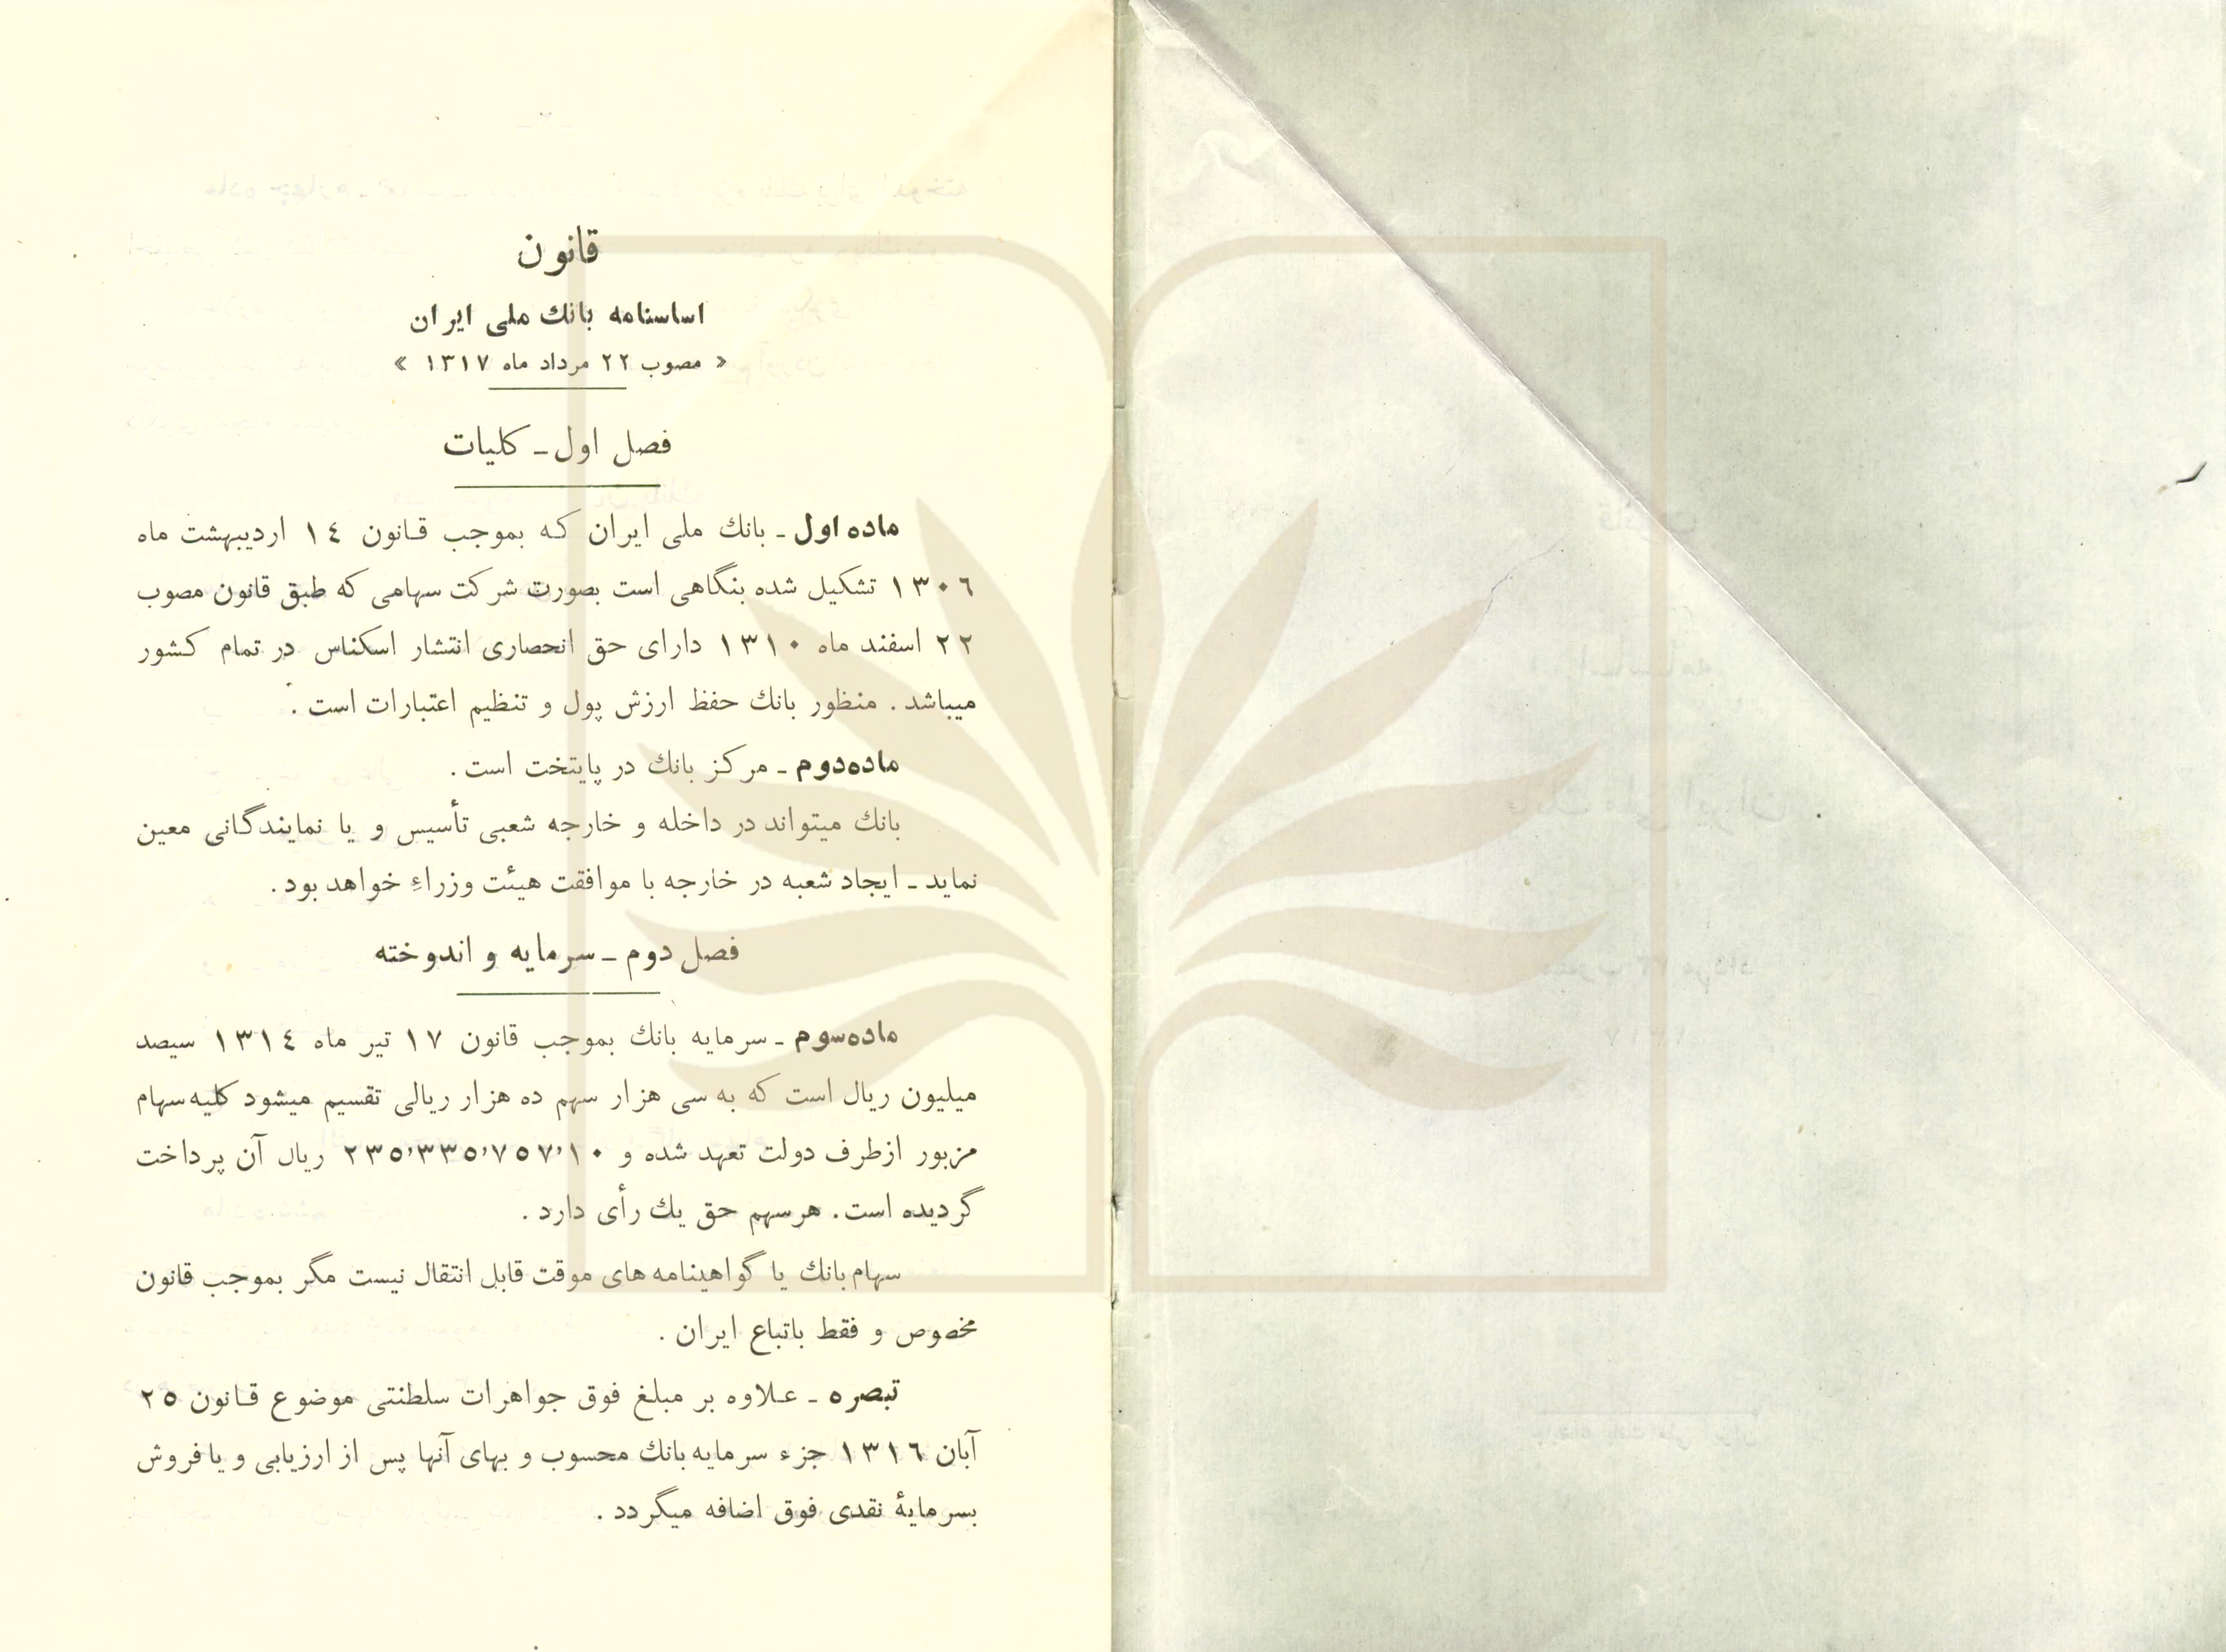 قانون
اساسنامه بانك ملی ایران
« مصوب ۲۲ مرداد ماه ۱۳۱۷ »
فصل اول ـ كلیات
ماده اول ـ بانك ملی ایران كه بموجب قانون ۱٤ اردیبهشت ماه
۱۳۰٦ تشكیل شده بنگاهی است بصورت شركت سهامی كه طبق قانون مصوب
۲۲ اسفند ماه ۱۳۱۰ دارای حق انحصاری انتشار اسكناس در تمام كشور
میباشد . منظور بانك حفظ ارزش پول و تنظیم اعتبارات است .
ماده دوم ـ مركز بانك در پایتخت است .
بانك میتواند در داخله و خارجه شعبی تأسیس و یا نمایندگانی معین
نماید ـ ایجاد شعبه در خارجه با موافقت هیئت وزراء خواهد بود .
فصل دوم ـ سرمایه و اندوخته
ماده سوم ـ سرمایه بانك بموجب قانون ۱۷ تیر ماه ۱۳۱٤ سیصد
میلیون ریال است كه به سی هزار سهم ده هزار ریالی تقسیم میشود كلیه سهام
مزبور از طرف دولت تعهد شده و ۲۳٥٬۳۳٥٬۷٥۷٬۱۰ ریال آن پرداخت
گردیده است . هر سهم حق یك رأی دارد .
سهام بانك یا گواهینامه های موقت قابل انتقال نیست مگر بموجب قانون
مخصوص و فقط باتباع ایران .
تبصره ـ علاوه بر مبلغ فوق جواهرات سلطنتی موضوع قانون ۲٥
آبان ۱۳۱٦ جزء سرمایه بانك محسوب و بهای آنها پس از ارزیابی و یا فروش
بسرمایهٔ نقدی فوق اضافه میگردد .